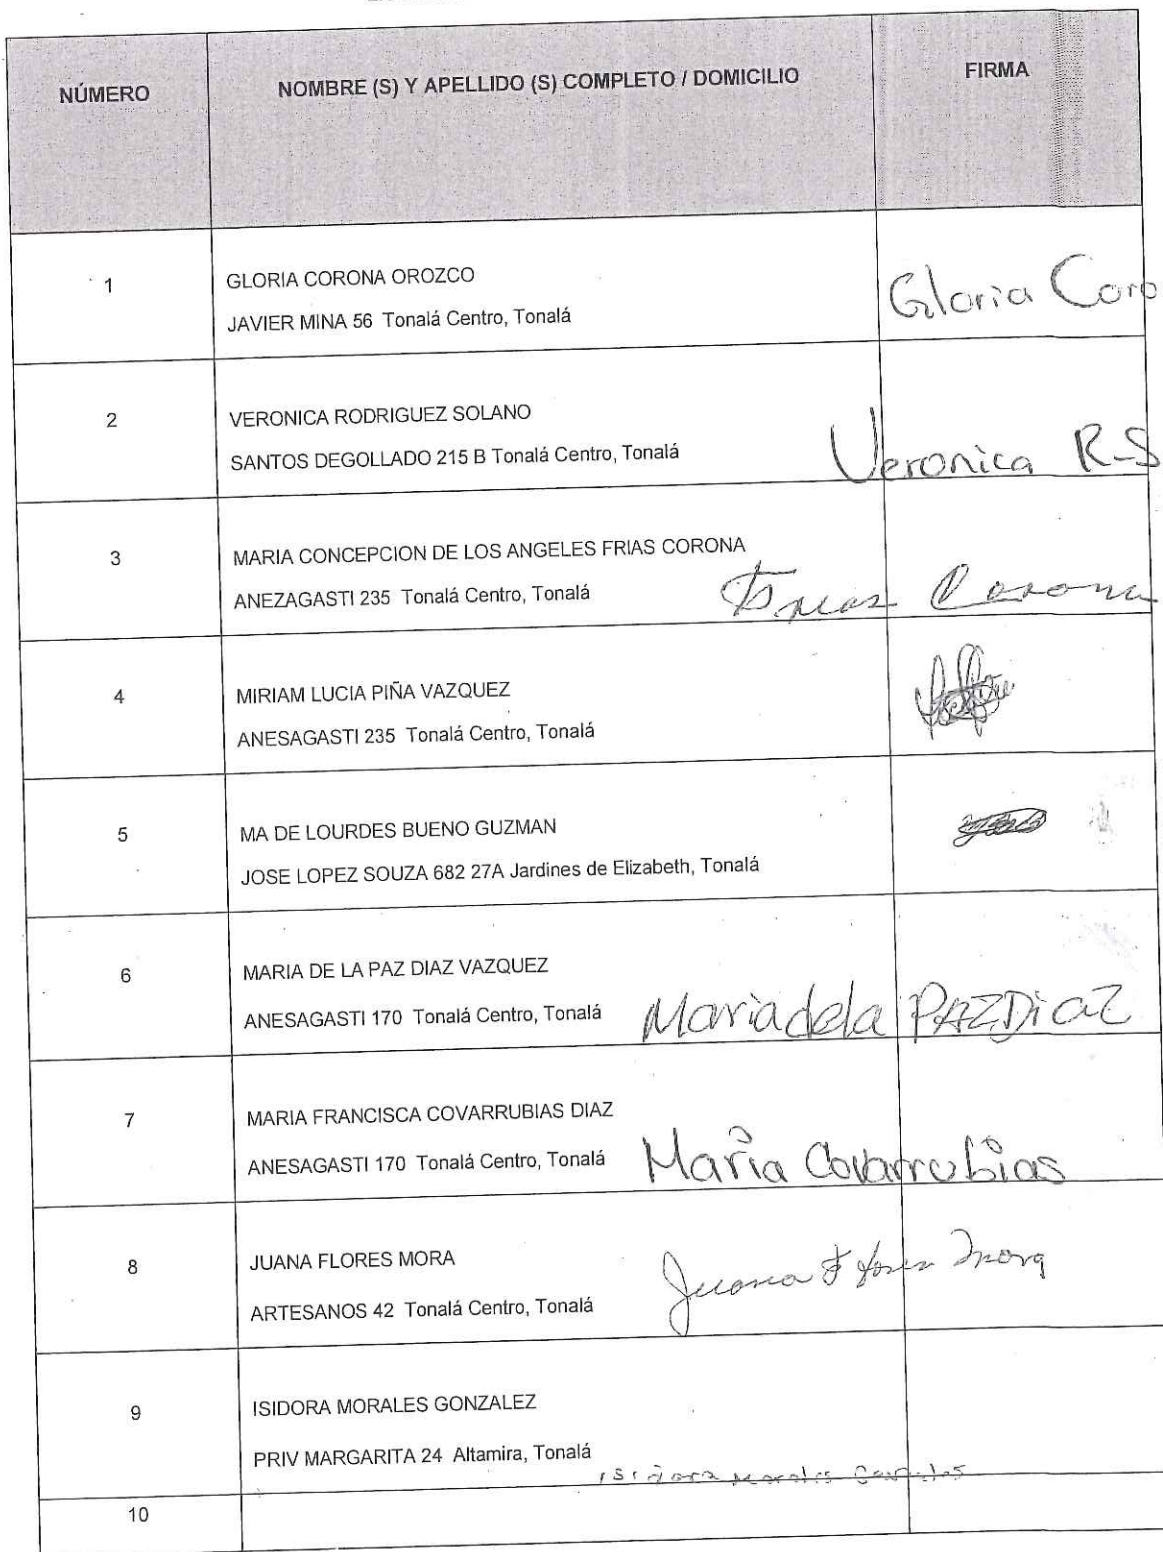 NÚMERO NOMBRE (S) Y APELLIDO (S) COMPLETO / DOMICILIO FIRMA
1 GLORIA CORONA OROZCO
JAVIER MINA 56 Tonalá Centro, Tonalá Gloria Coro
2 VERONICA RODRIGUEZ SOLANO
SANTOS DEGOLLADO 215 B Tonalá Centro, Tonalá Veronica R-S
3 MARIA CONCEPCION DE LOS ANGELES FRIAS CORONA
ANEZAGASTI 235 Tonalá Centro, Tonalá Frias Corona
4 MIRIAM LUCIA PIÑA VAZQUEZ
ANESAGASTI 235 Tonalá Centro, Tonalá
5 MA DE LOURDES BUENO GUZMAN
JOSE LOPEZ SOUZA 682 27A Jardines de Elizabeth, Tonalá
6 MARIA DE LA PAZ DIAZ VAZQUEZ
ANESAGASTI 170 Tonalá Centro, Tonalá Maria dela PAZ DiaZ
7 MARIA FRANCISCA COVARRUBIAS DIAZ
ANESAGASTI 170 Tonalá Centro, Tonalá Maria Covarrubias
8 JUANA FLORES MORA
ARTESANOS 42 Tonalá Centro, Tonalá Juana Flores Mora
9 ISIDORA MORALES GONZALEZ
PRIV MARGARITA 24 Altamira, Tonalá
Isidora Morales
10